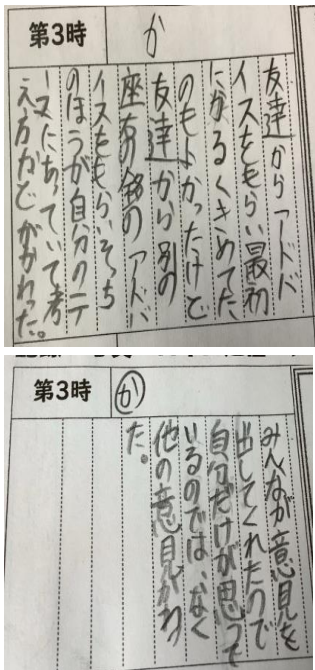 第3時
か
友達からアードバ
イスをもらい最初
にかるくきめてた
のもよかったけど
友達から別の
座右の銘のアドバ
イスをもらいそっち
のほうが自分のテ
ーマにあっていて考
え方などがかわった。
第3時
か
みんなが意見を
出してくれたので
自分だけが思って
いるのでは、なく
他の意見がわ
た。